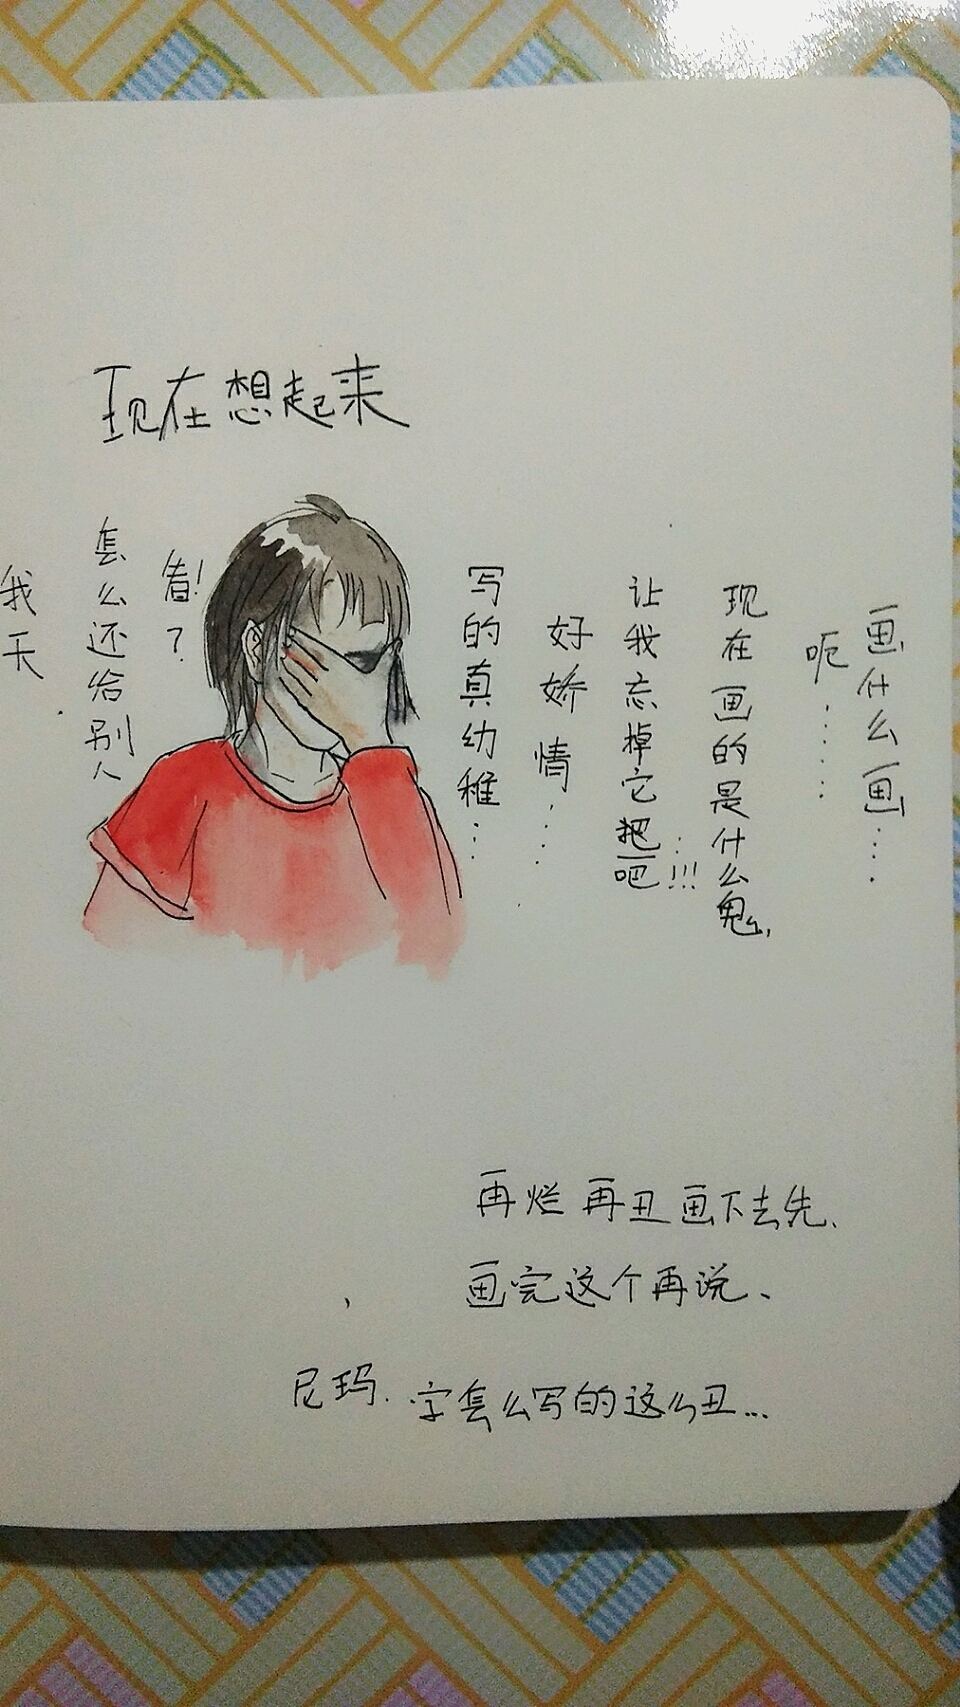 现在想起来
我天.
怎么还给别人
看!?
写的真幼稚…
好娇情……
让我忘掉它把吧…!!!
现在画的是什么鬼,
呃……
画什么画…
再烂再丑画下去先、
画完这个再说、
尼玛.字怎么写的这么丑...